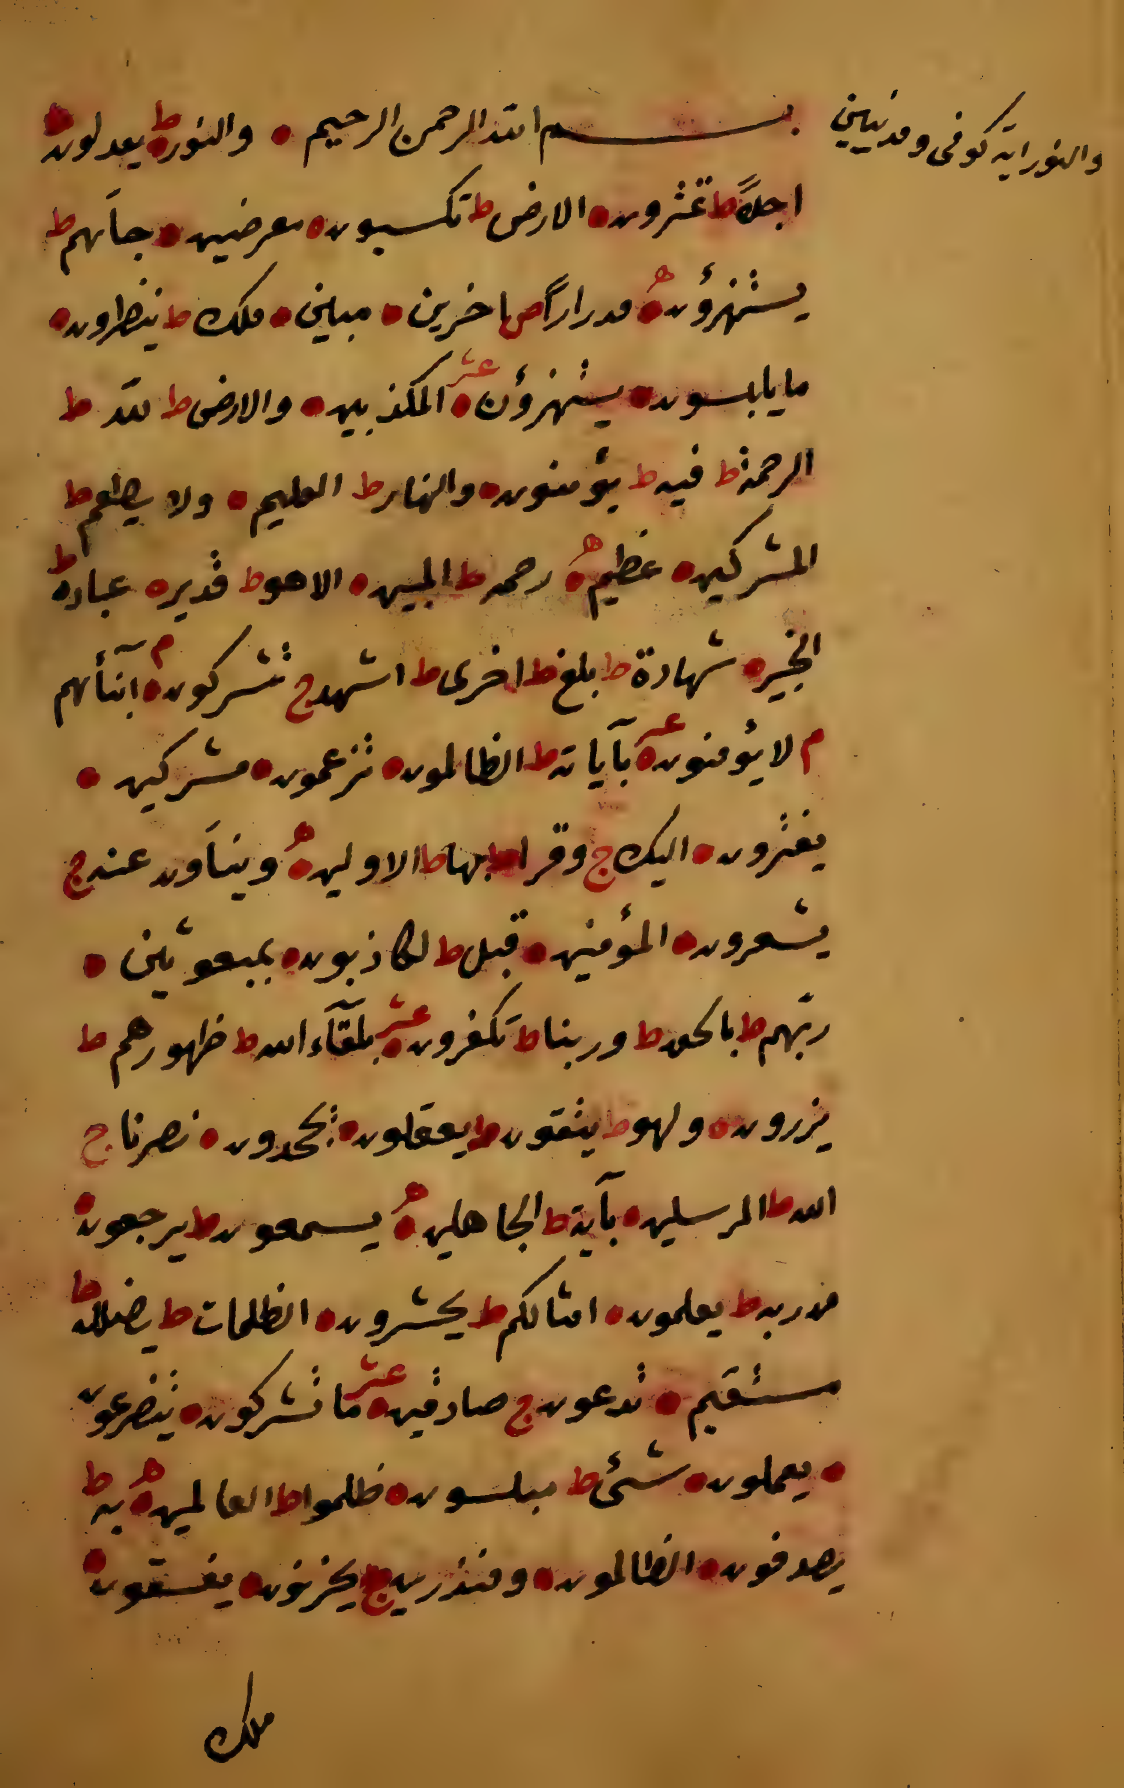 والنور اية كوفي ومدنيين
بسم الله الرحمن الرحيم • والنور ط • يعدلون •
اجلاً ط تمترون • الارض ط تكسبون • معرضين • جآءهم ط
يستهزؤن ه • مدراراً ص اخرين • مبين • ملك ط ينظرون •
ما يلبسون • يستهزؤن عشر • المكذبين • والارض ط لله ط
الرحمة ط فيه ط يؤمنون • والنهار ط العليم • ولا يطعم ط
المشركين • عظيم ه • رحمه ط المبين • الا هو ط قدير • عباده ط
الخبير • شهادة ط بلغ ط اخرى ط اشهد ج تشركون م • ابنآئهم
م لا يؤمنون عشر • بآياته ط الظالمون • تزعمون • مشركين •
يفترون • اليك ج وقرا ط بها ط الاولين ه • وينأون عنه ج
يشعرون • المؤمنين • قبل ط لكاذبون • بمبعوثين •
ربّهم ط بالحق ط وربنا ط تكفرون عشر • بلقآء الله ط ظهورهم ط
يزرون • ولهو ط يتقون ط يعقلون • يجحدون • نصرنا ج
الله ط المرسلين • بآية ط الجاهلين ه • يسمعون ط يرجعون •
من ربه ط يعلمون • امثالكم ط يحشرون • الظلمات ط يضلله ط
مستقيم • تدعون ج صادقين عشر • ما تشركون • يتضرعون
• يعملون • شئ ط مبلسون • ظلموا ط العالمين ه • به ط
يصدفون • الظالمون • ومنذرين ج يحزنون • يفسقون •
ملك